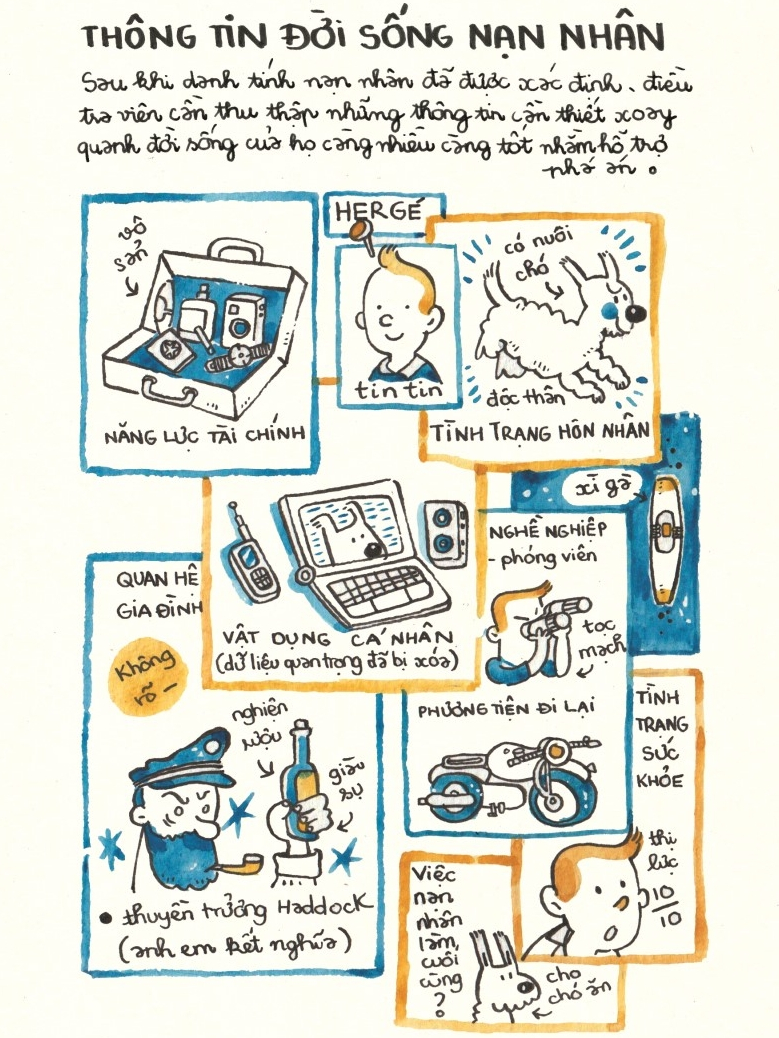 THÔNG TIN ĐỜI SỐNG NẠN NHÂN
Sau khi danh tính nạn nhân đã được xác định, điều
tra viên cần thu thập những thông tin cần thiết xoay
quanh đời sống của họ càng nhiều càng tốt nhằm hỗ trợ
phá án.
vô
sản
NĂNG LỰC TÀI CHÍNH
HERGÉ
tin tin
có nuôi
chó
độc thân
TÌNH TRẠNG HÔN NHÂN
xì gà
VẬT DỤNG CÁ NHÂN
(dữ liệu quan trọng đã bị xóa)
NGHỀ NGHIỆP
- phóng viên
tọc
mạch
QUAN HỆ
GIA ĐÌNH
không
rõ –
nghiện
rượu
giàu
sụ
• thuyền trưởng Haddock
(anh em kết nghĩa)
PHƯƠNG TIỆN ĐI LẠI
TÌNH
TRẠNG
SỨC
KHỎE
thị
lực
10
10
Việc
nạn
nhân
làm
cuối
cùng
?
cho
chó ăn